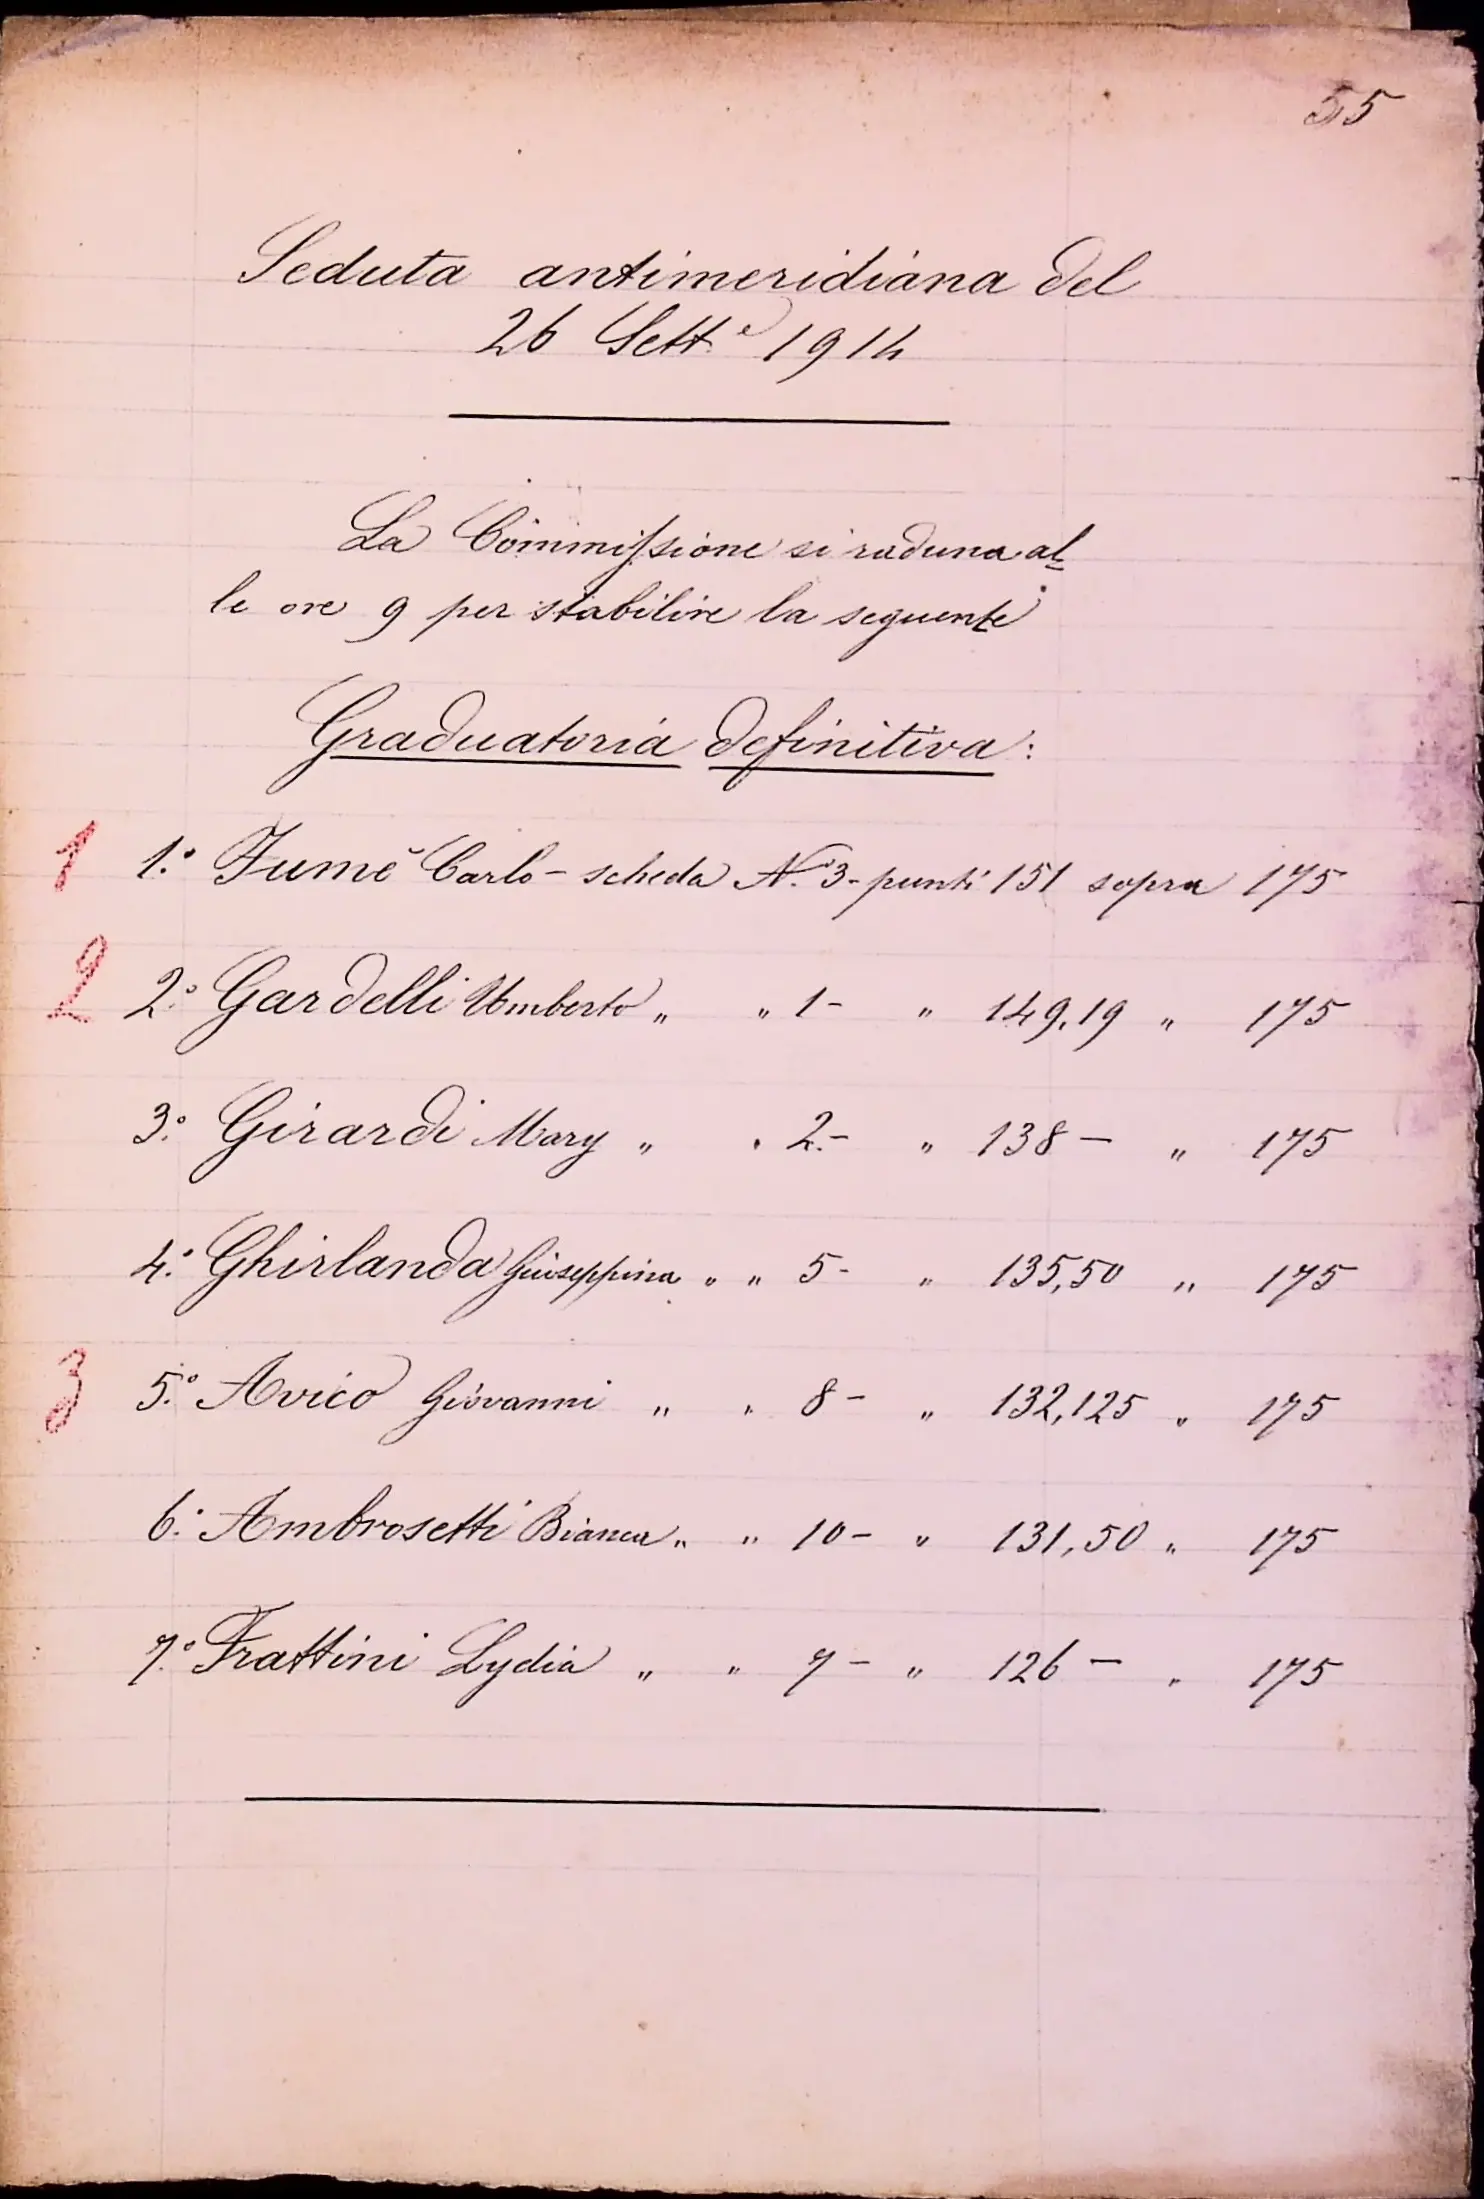 55
Seduta antimeridiana del
26 Sett.e 1914
La Commissione si raduna al=
le ore 9 per stabilire la seguente
Graduatoria definitiva:
1 1.° Fumè Carlo - scheda N.° 3 - punti 151 sopra 175
2 2.° Gardelli Umberto " " 1 - " 149,19 " 175
3.° Girardi Mary " " 2. - " 138 - " 175
4.° Ghirlanda Giuseppina " " 5 - " 135,50 " 175
3 5.° Avico Giovanni " " 8 - " 132,125 " 175
6.° Ambrosetti Bianca " " 10 - " 131,50 " 175
7.° Frattini Lydia " " 7 - " 126 - " 175